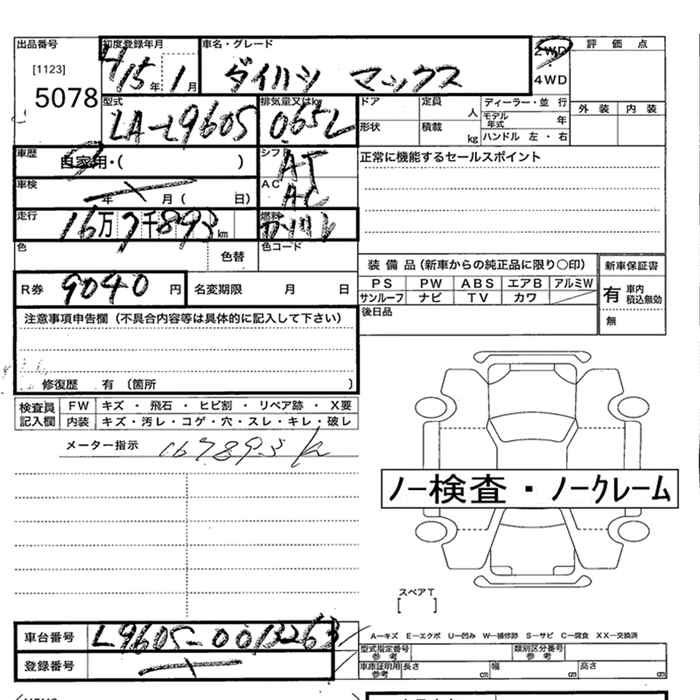 出品番号 初度登録年月 車名・グレード 2WD 評価点
[1123] H15年1月 ダイハツ マックス 4WD
5078 型式 排気量又はkg ドア 定員 人 ディーラー・並行 外装 内装
LA-L960S 0.65L 形状 積載 kg モデル年式 年
ハンドル 左・右
車歴 自家用・( ) シフト AT 正常に機能するセールスポイント
車検 年 月( 日) AC AC
走行 16万7千893km 燃料 ガソリン
色 色替 色コード
装備品(新車からの純正品に限り〇印) 新車保証書
R券 9040円 名変期限 月 日 PS PW ABS エアB アルミW 有 車内積込無効
サンルーフ ナビ TV カワ 無
注意事項申告欄(不具合内容等は具体的に記入して下さい) 後日品
修復歴 有(箇所 )
検査員記入欄 FW キズ・飛石・ヒビ割・リペア跡・X要
内装 キズ・汚レ・コゲ・穴・スレ・キレ・破レ
メーター指示 167893k
ノー検査・ノークレーム
スペアT
[ ]
車台番号 L960S-0013263 A-キズ E-エクボ U-凹み W-補修跡 S-サビ C-腐食 XX-交換済
登録番号 型式指定番号 参考 類別区分番号 参考
車庫証明用 参考 長さ cm 幅 cm 高さ cm